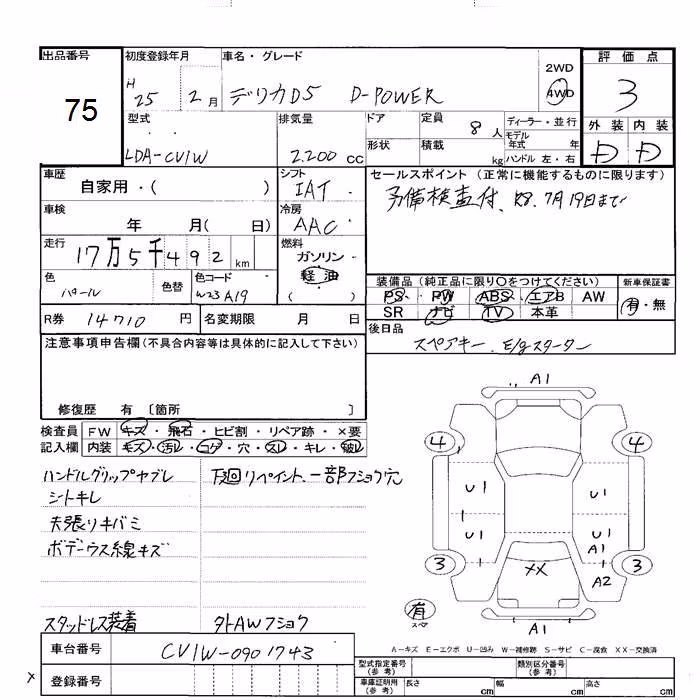 出品番号 初度登録年月 車名・グレード 評価点
75
H 25 2月 デリカD5 D-POWER 2WD 4WD 3
型式 排気量 ドア 定員 8人 ディーラー・並行 外装 内装
LDA-CV1W 2.200cc 形状 積載 kg モデル年式 年 ハンドル 左・右 D D
車歴 シフト セールスポイント(正常に機能するものに限ります)
自家用・( ) IAT 予備検査付、R8.7月19日まで
車検 冷房
年 月( 日) AAC
走行 燃料
17万5千492km ガソリン
軽油
( )
色 色替 色コード 装備品(純正品に限り○をつけてください) 新車保証書
パール W23 A19 PS・PW ABS・エアB AW 有・無
SR ナビ TV 本革
R券 14710円 名変期限 月 日 後日品
スペアキー、E/gスターター
注意事項申告欄(不具合内容等は具体的に記入して下さい)
修復歴 有 〔箇所 〕
検査員 FW キズ・飛石・ヒビ割・リペア跡・×要
記入欄 内装 キズ・汚レ・コゲ・穴・スレ・キレ・破レ
ハンドルグリップヤブレ 下廻リペイント、一部フショク穴
シートキレ
天張りキバミ
ボデーウス線キズ
スタッドレス装着 外AWフショク
A1
4 4
U1 U1
1
U1 U1
A1
1 1
3 3
XX A2
有
スペア
A1
A-キズ E-エクボ U-凹み W-補修跡 S-サビ C-腐食 XX-交換済
車台番号 CV1W-0901743
型式指定番号(参考) 類別区分番号(参考)
× 登録番号 車庫証明用(参考) 長さ cm 幅 cm 高さ cm